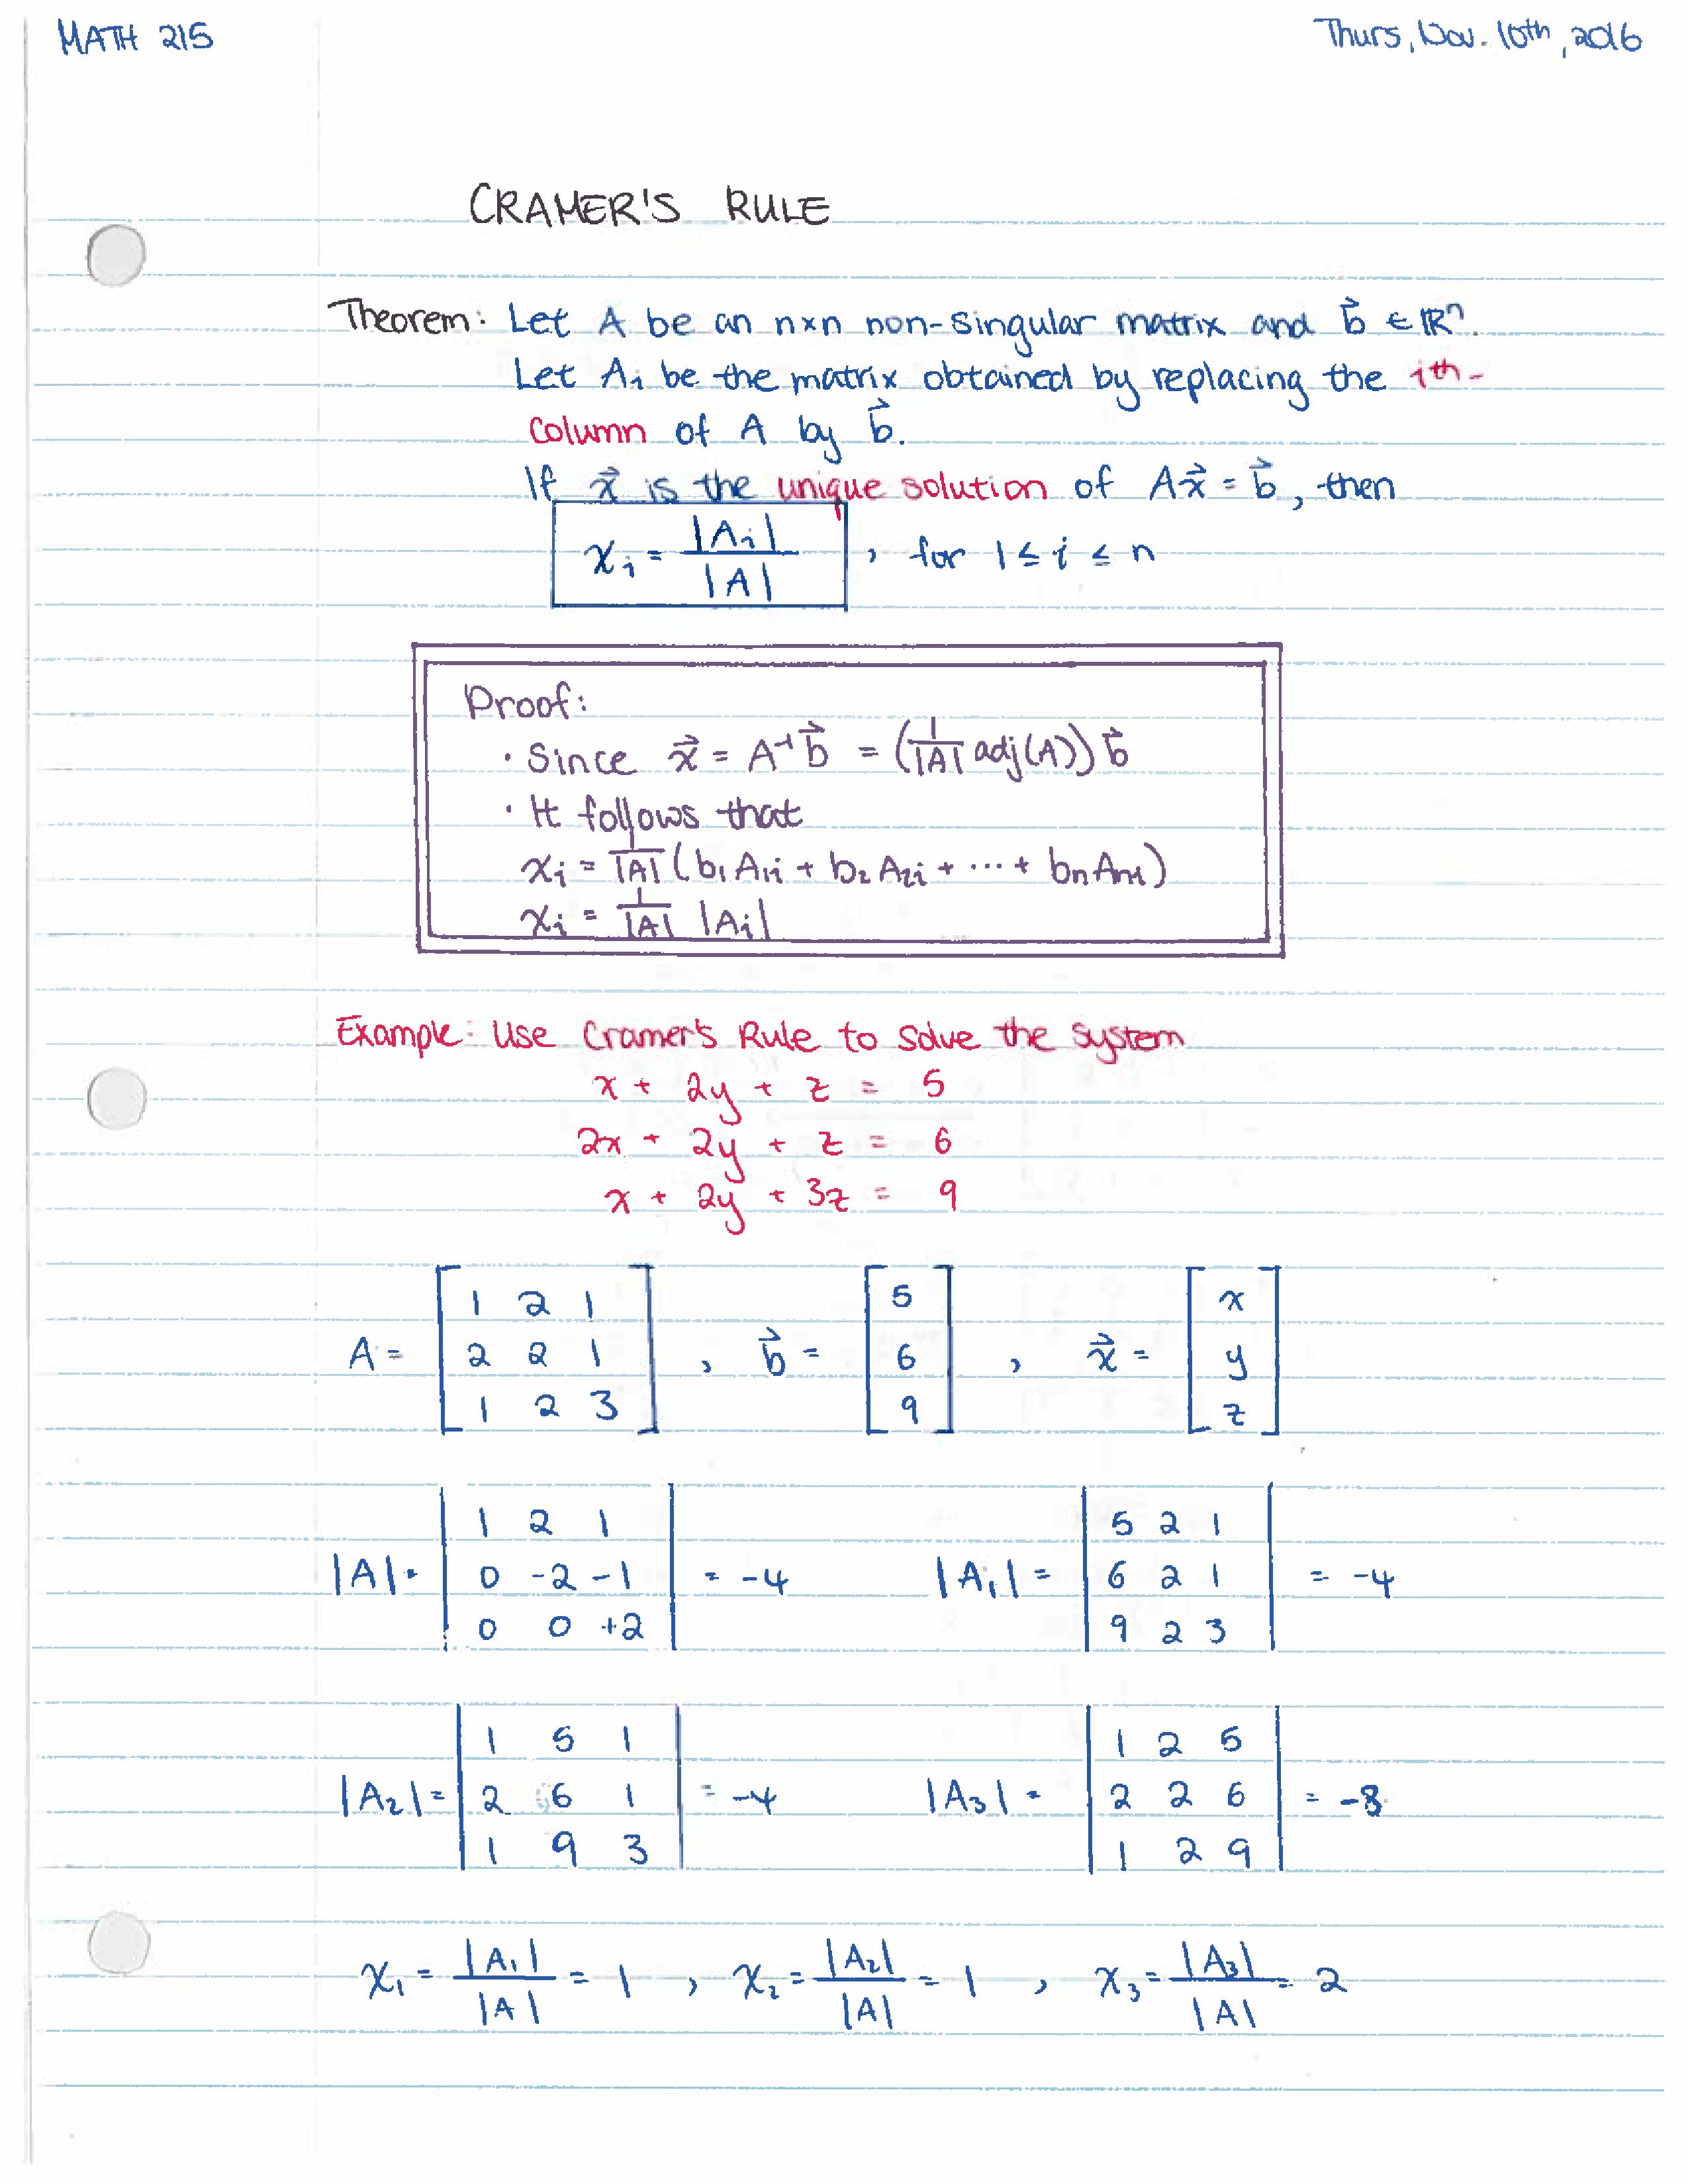 MATH 215 Thurs, Nov. 10th, 2016
CRAMER'S RULE
Theorem: Let A be an n×n non-singular matrix and b⃗ ∈ ℝⁿ.
Let Aᵢ be the matrix obtained by replacing the ith-
column of A by b⃗.
If x⃗ is the unique solution of Ax⃗ = b⃗, then
xᵢ = |Aᵢ| / |A| , for 1 ≤ i ≤ n
Proof:
· Since x⃗ = A⁻¹b⃗ = (1/|A| adj(A)) b⃗
· It follows that
xᵢ = 1/|A| (b₁A₁ᵢ + b₂A₂ᵢ + ··· + bₙAₙᵢ)
xᵢ = 1/|A| |Aᵢ|
Example: Use Cramer's Rule to solve the system
x + 2y + z = 5
2x + 2y + z = 6
x + 2y + 3z = 9
A = [1 2 1; 2 2 1; 1 2 3] , b⃗ = [5; 6; 9] , x⃗ = [x; y; z]
|A| = |1 2 1; 0 -2 -1; 0 0 +2| = -4 |A₁| = |5 2 1; 6 2 1; 9 2 3| = -4
|A₂| = |1 5 1; 2 6 1; 1 9 3| = -4 |A₃| = |1 2 5; 2 2 6; 1 2 9| = -8
x₁ = |A₁| / |A| = 1 , x₂ = |A₂| / |A| = 1 , x₃ = |A₃| / |A| = 2